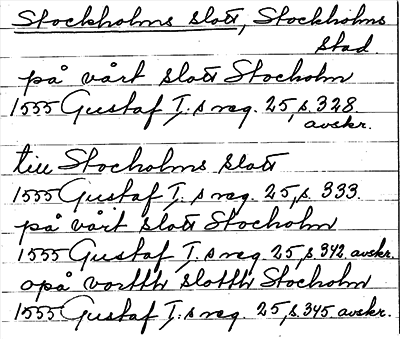 Stockholms slott, Stockholms
stad
på vårt slott Stocholm
1555 Gustaf I:s reg. 25, s. 328
avskr.
till Stocholms slott
1555 Gustaf I:s reg. 25, s. 333.
på vårt slott Stocholm
1555 Gustaf I:s reg. 25, s. 342 avskr.
opå vortth slotth Stocholm
1555 Gustaf I:s reg. 25, s. 345 avskr.